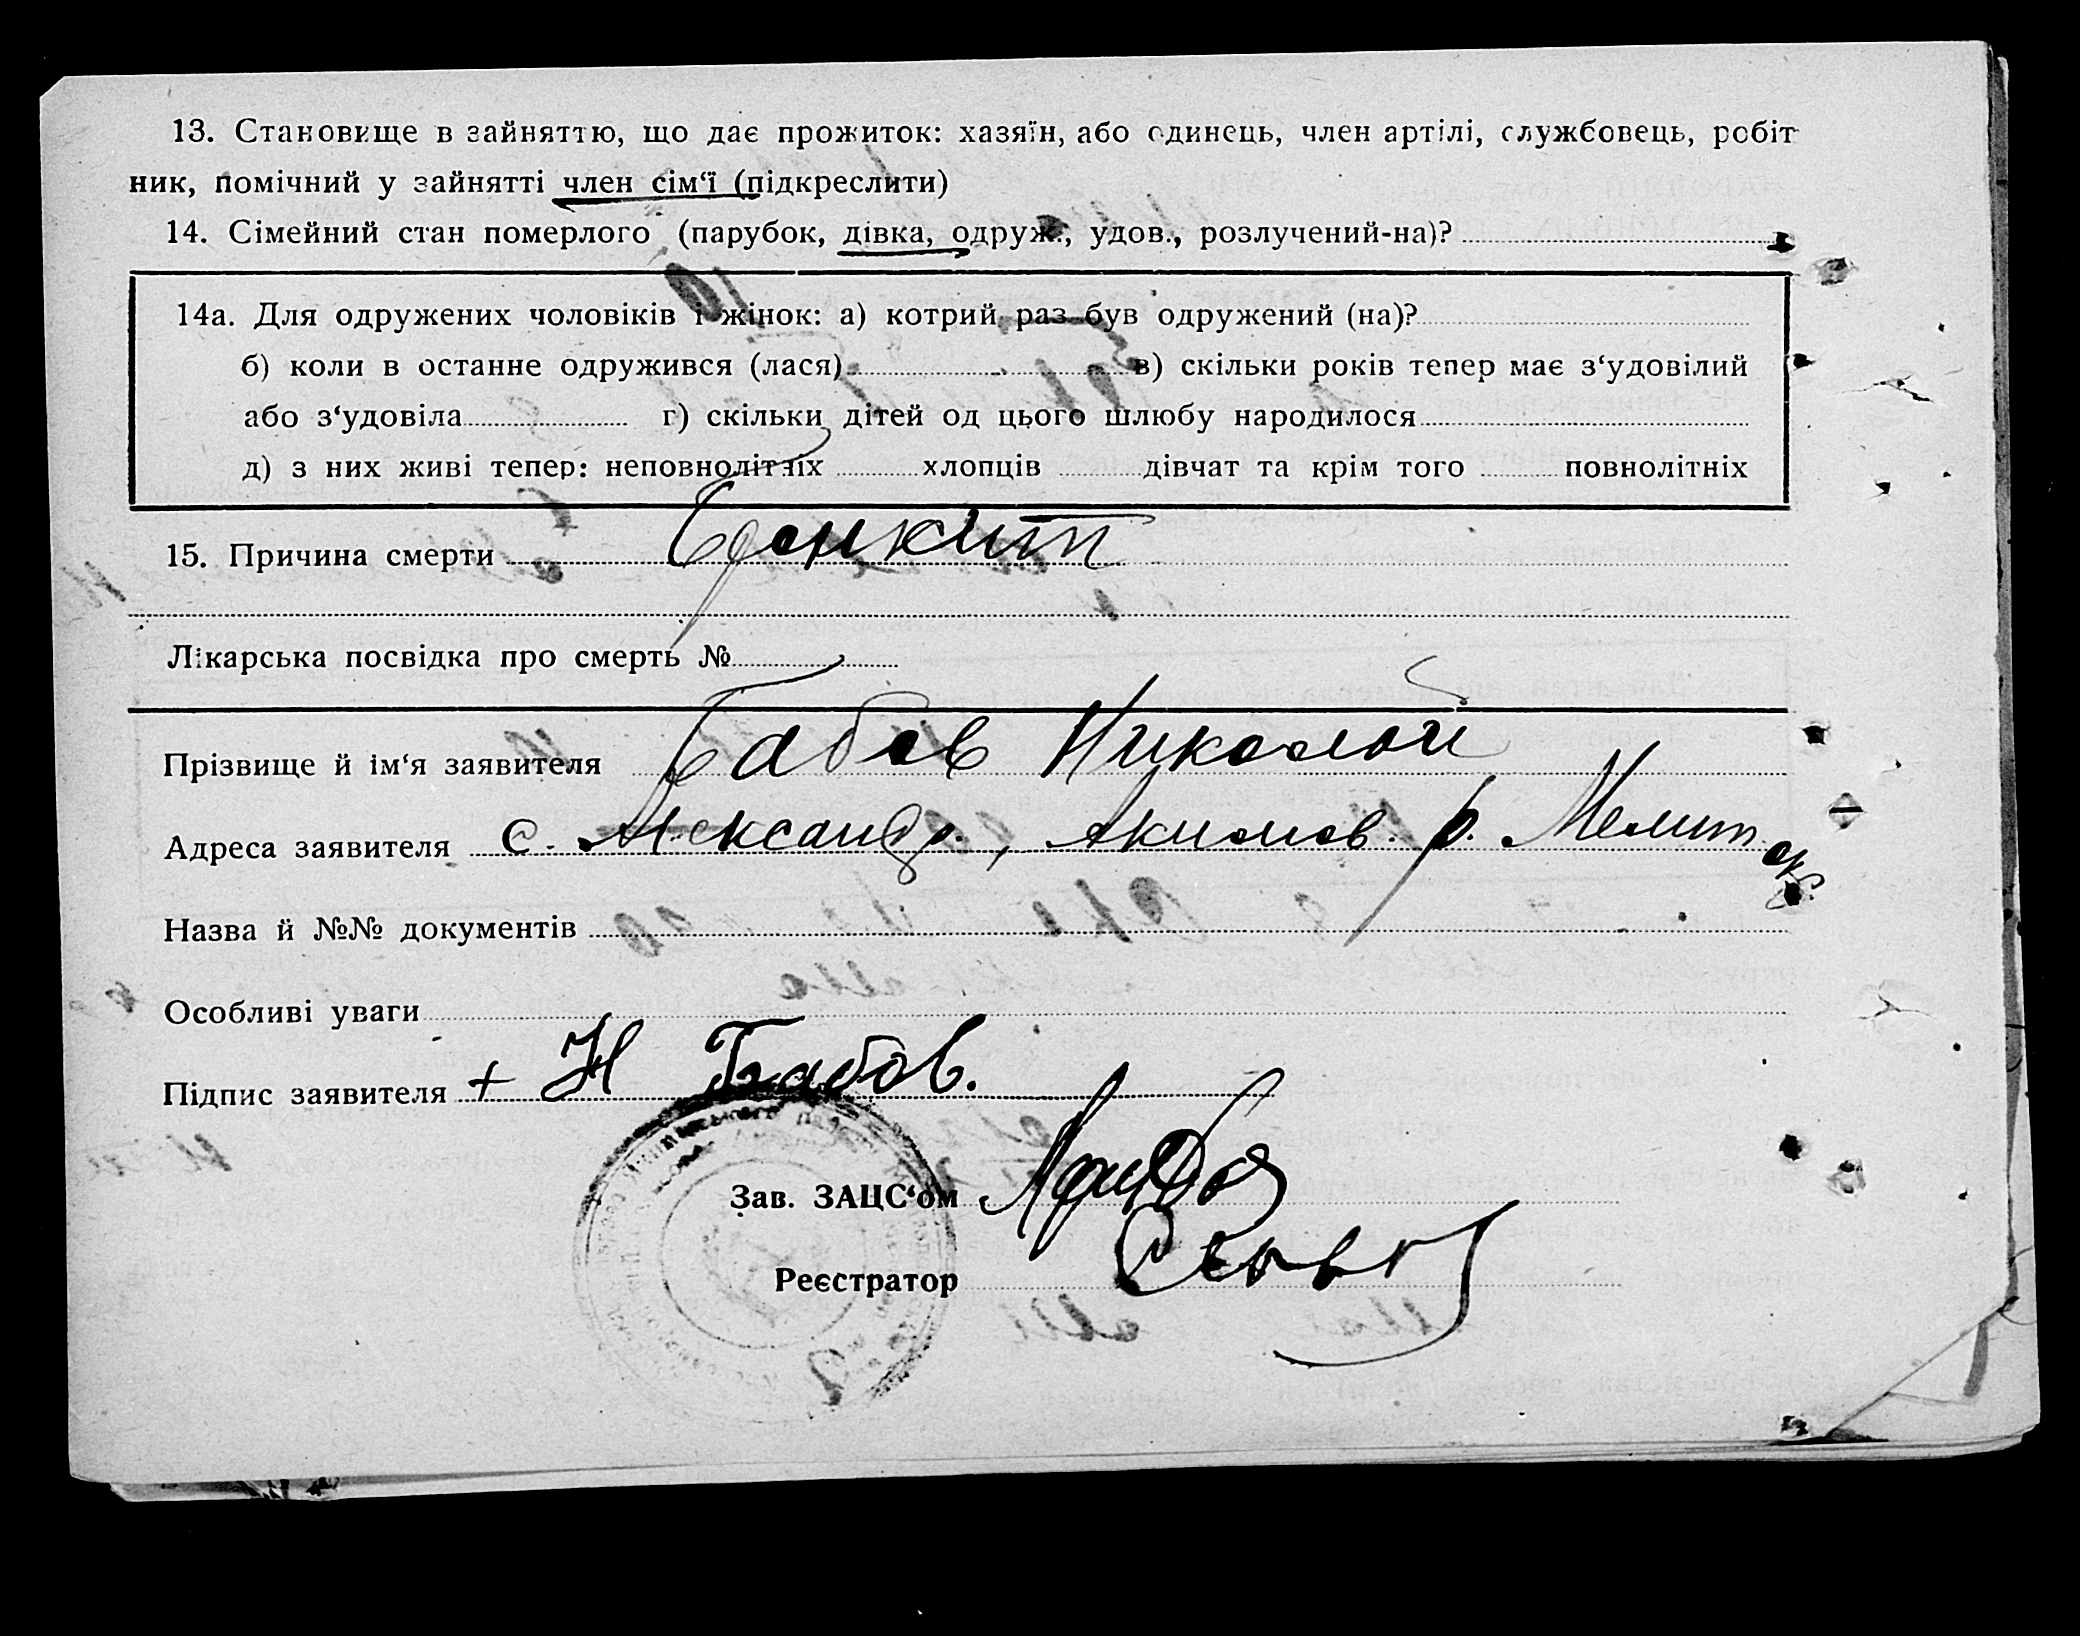 13. Становище в зайняттю, що дає прожиток: хазяїн, або єдинець, член артілі, службовець, робіт
ник, помічний у зайнятті член сім‘ї (підкреслити)
14. Сімейний стан померлого (парубок, дівка, одруж., удов., розлучений-на)?
14а. Для одружених чоловіків і жінок: а) котрий раз був одружений (на)?
б) коли в останне одружився (лася) в) скільки років тепер має з‘удовілий
або з‘удовіла г) скільки дітей од цього шлюбу народилося
д) з них живі тепер: неповнолітніх хлопців дівчат та крім того повнолітніх
15. Причина смерти Бронкит
Лікарська посвідка про смерть №
Прізвище й ім‘я заявителя Бабов Николай
Адреса заявителя с. Александр., Акимов. р. Мелит. окр.
Назва й №№ документів
Особливі уваги
Підпис заявителя + Н Бабов.
Зав. ЗАЦС‘ом
Реєстратор